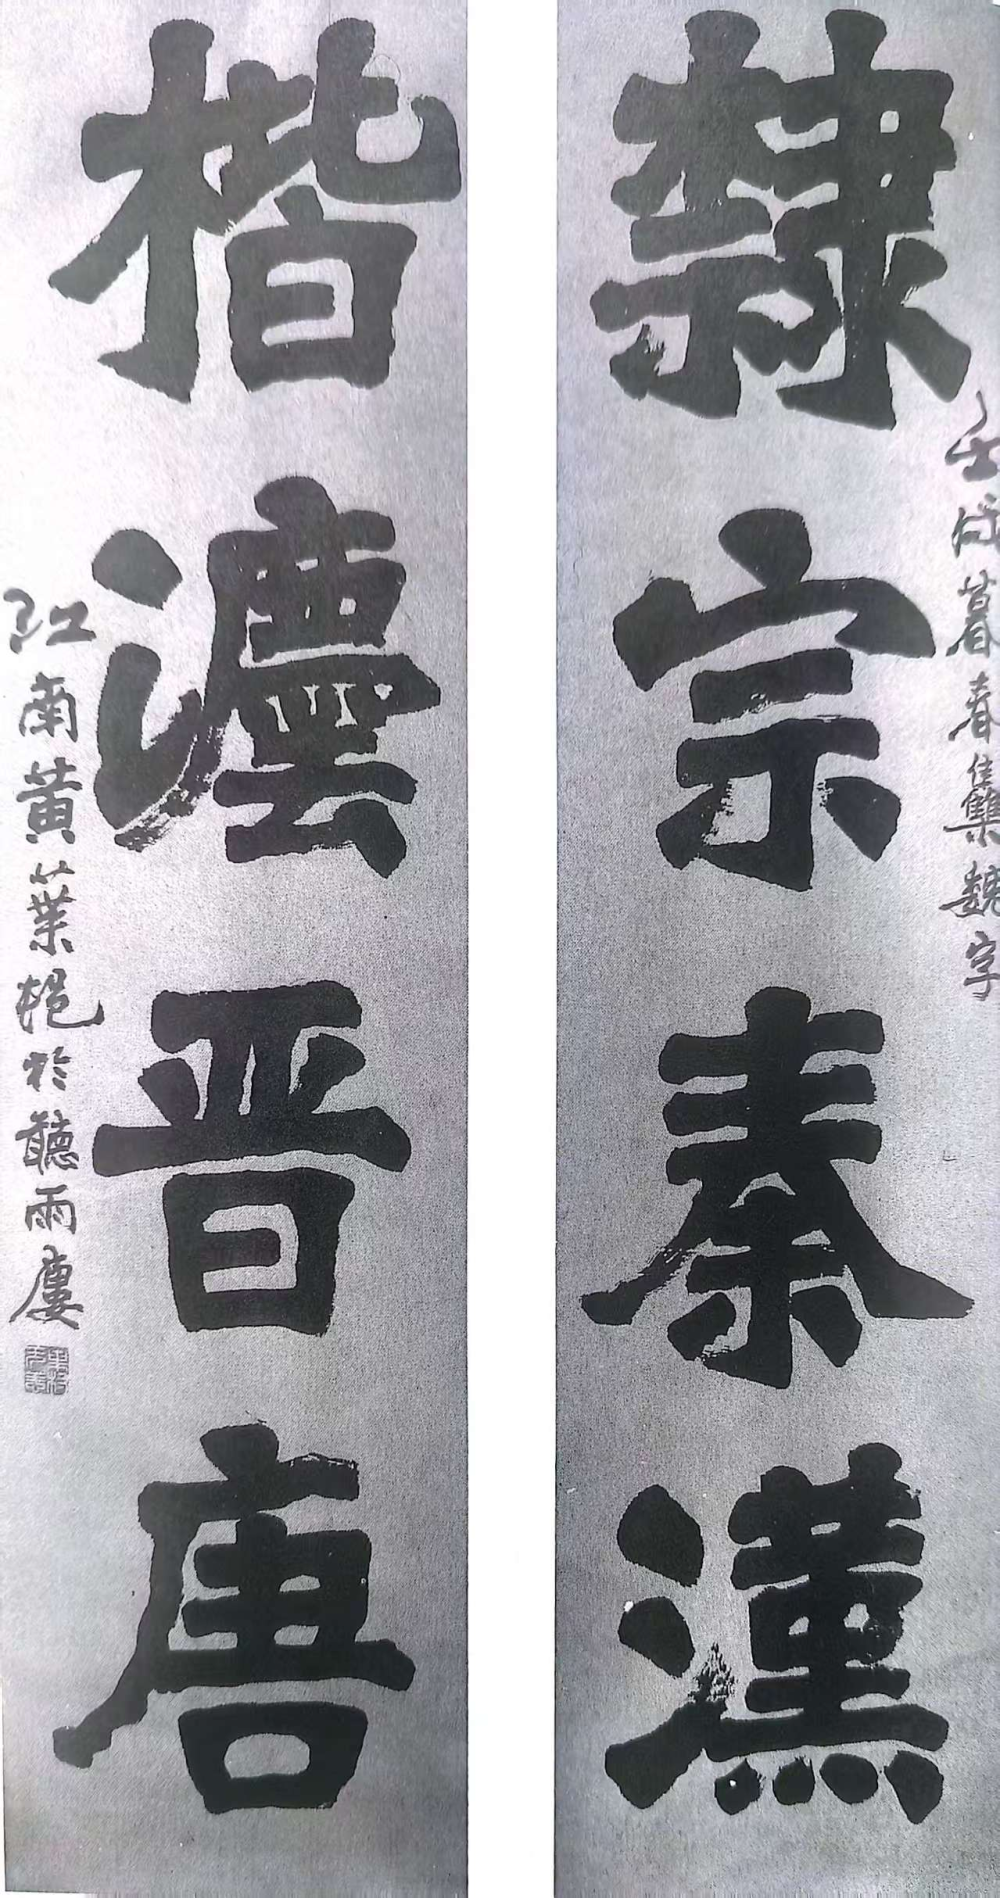 隸宗秦漢
壬戌暮春集魏字
楷法晉唐
江南黃葉邨於聽雨廔